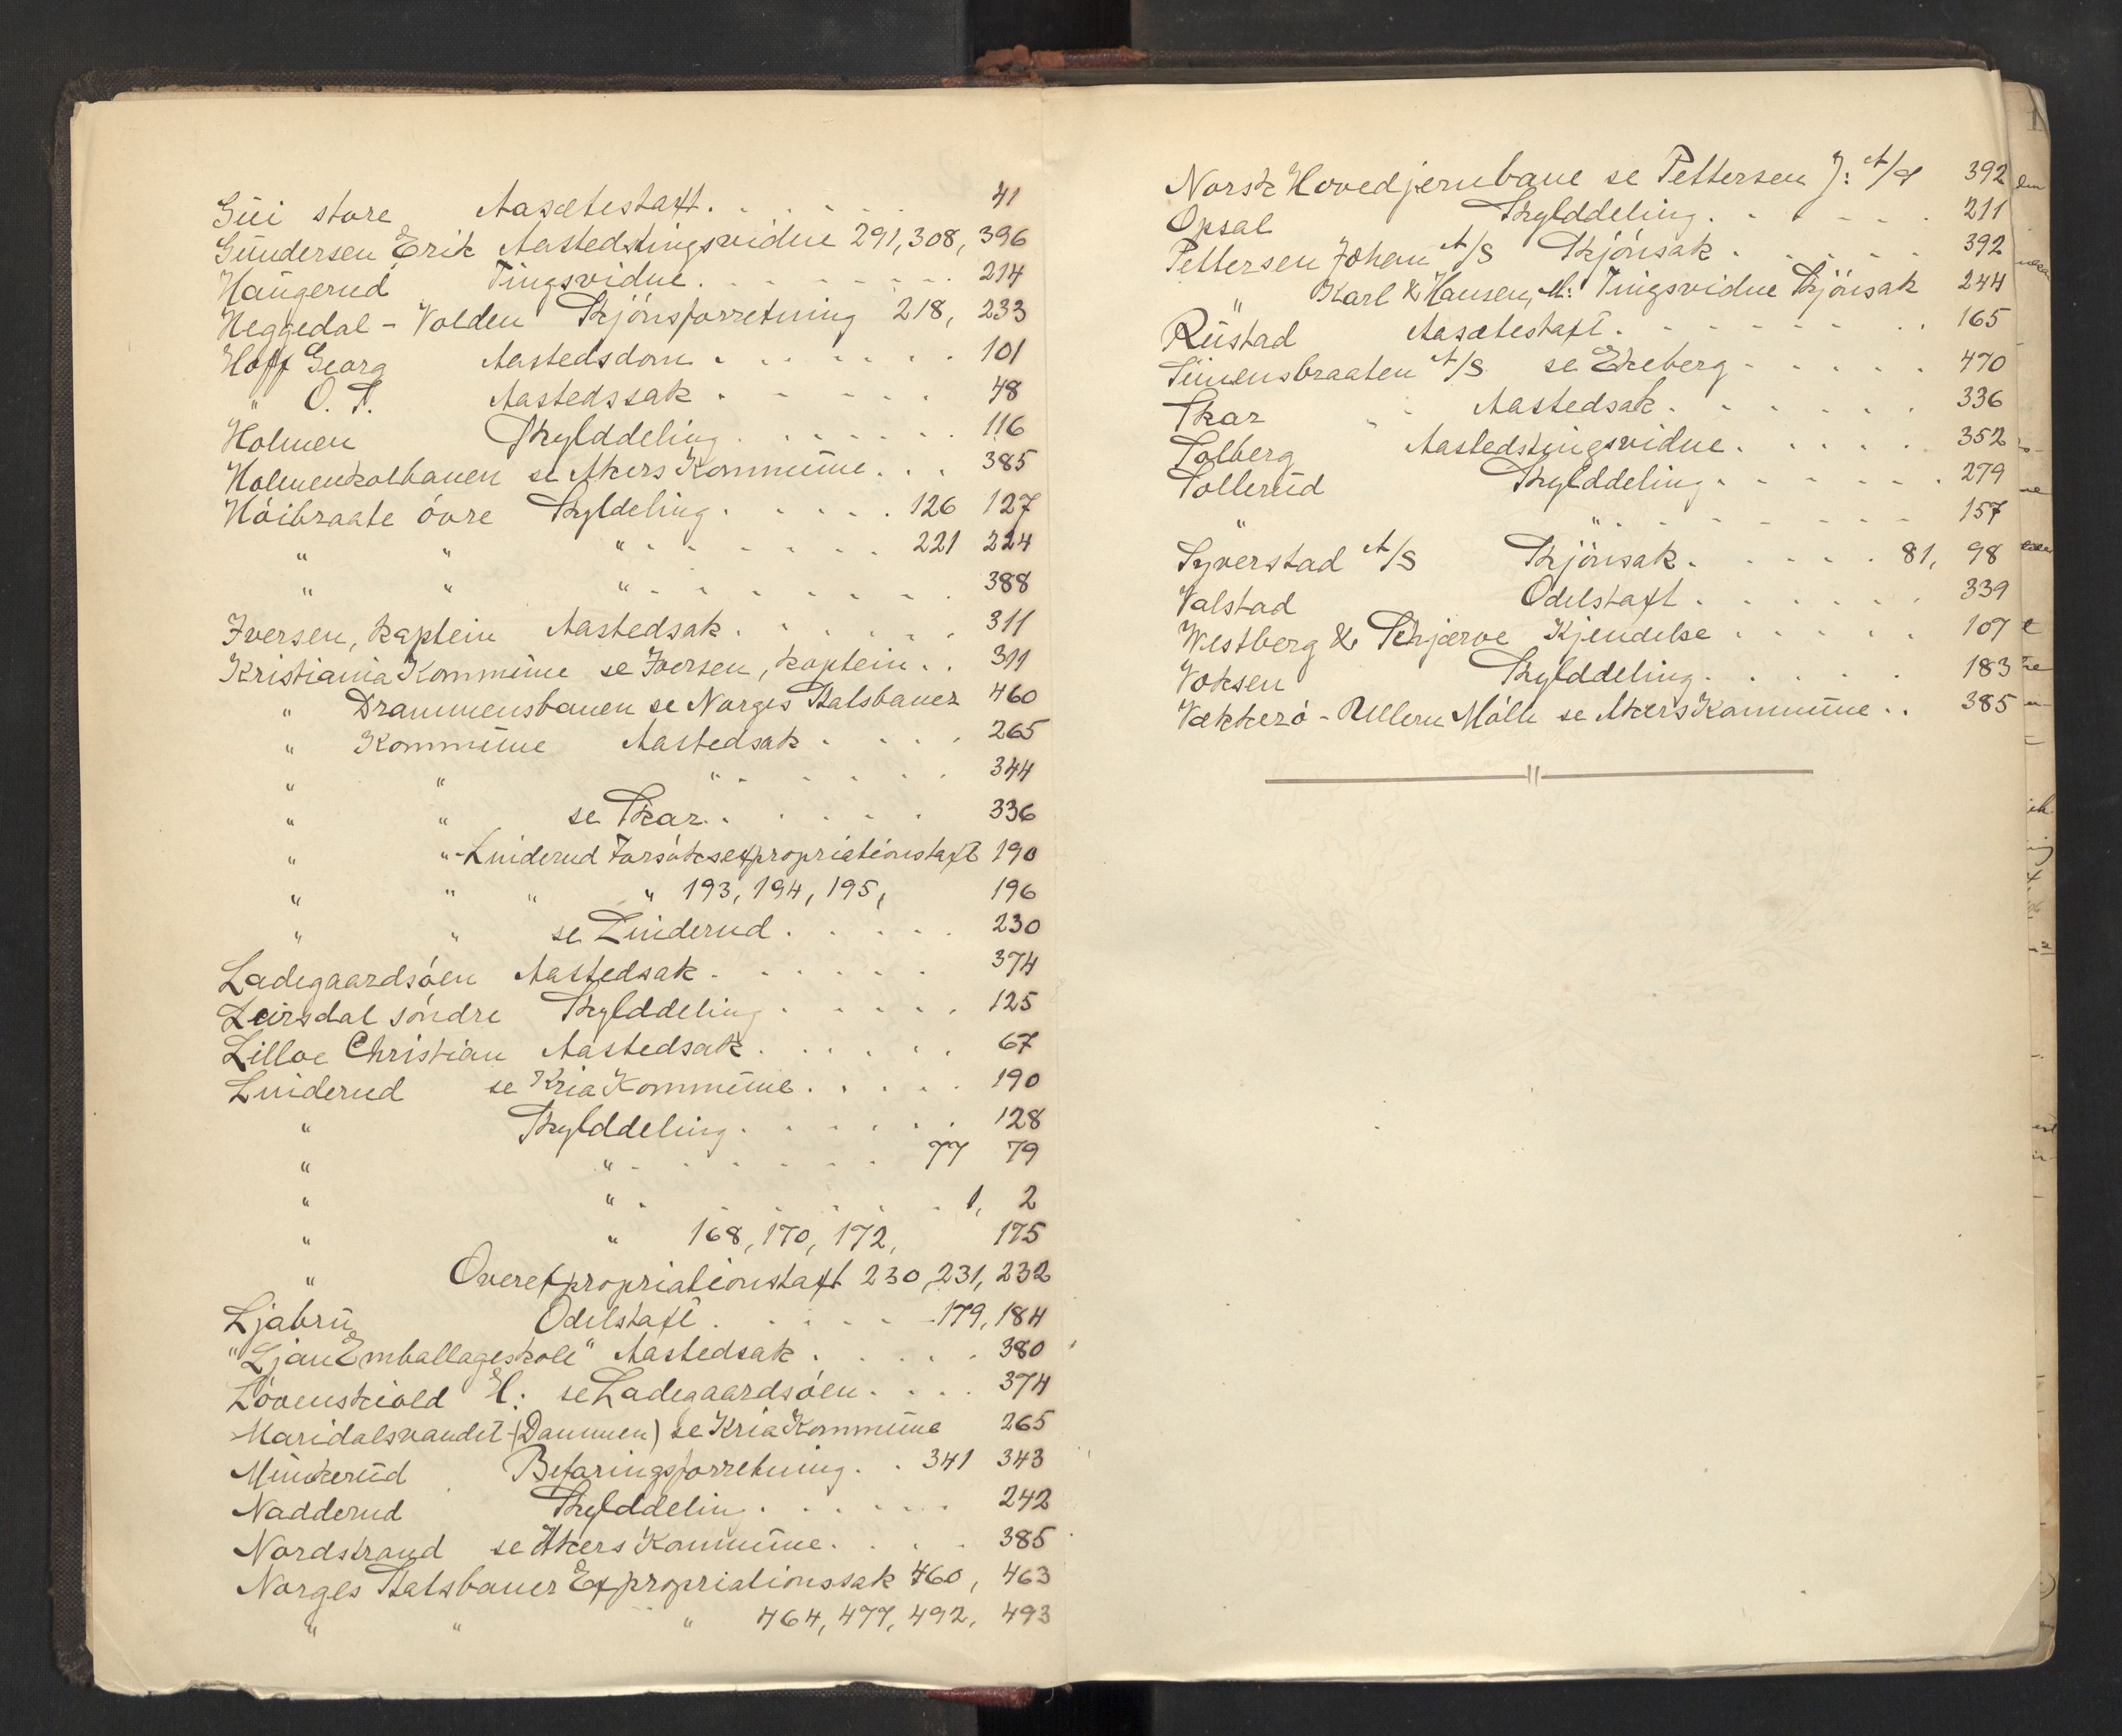 Gui store Aasætestaxt. 41
Gundersen Erik Aastedstingsvidne 291, 308, 396
Haugerud Tingsvidne. 214
Heggedal - Volden Skjönsforretning 218, 233
Hoff Georg Aastedsdom. 101
" O. T. Aastedssak. 48
Holmen Skylddeling. 116
Holmenkolbanen se Akers Kommune. 385
Höibraate övre Skyldeling. 126 127
" " " 221 224
" " " 388
Iversen, kaptein Aastedsak. 311
Kristiania Kommune se Iversen, kaptein. 311
" Drammensbanen se Norges Statsbaner 460
" Kommune Aastedsak. 265
" " " 344
" " se Skar. 336
" " " Linderud Forsökseexpropriationstaxt 190
" " " " 193, 194, 195, 196
" " se Linderud. 230
Ladegaardsöen Aastedsak. 374
Leirsdal söndre Skylddeling. 125
Lilloe Christian Aastedsak. 67
Linderud se Kria Kommune. 190
" Skylddeling. 128
" " 77 79
" " 1, 2
" " 168, 170, 172, 175
" Overexpropriationstaxt 230, 231, 232
Ljabru Odelstaxt. 179, 184
"Ljan Emballageskole" Aastedsak. 380
Lövenskiold H: se Ladegaardsöen. 374
Maridalsvandet (Dammen) se Kria Kommune 265
Munkerud Befaringsforretning. 341 343
Nadderud Skylddelin. 242
Nordstrand se Akers Kommune. 385
Norges Statsbaner Expropriationssak 460, 463
" " " 464, 477, 492, 493
Norsk Hovedjernbane se Pettersen J: A/S 392
Opsal Skylddeling. 211
Pettersen Johan A/S Skjönsak. 392
" Karl & Hansen, A: Tingsvidne Skjönsak 244
Rustad Aasætestaxt. 165
Simensbraaten A/S se Ekeberg 470
Skar Aastedsak. 336
Solberg Aastedstingsvidne. 352
Sollerud Skylddeling. 279
" " 157
Syverstad A/S Skjönsak. 81, 98
Valstad Odelstaxt. 339
Westberg & Schjærve Kjendelse. 107
Voksen Skylddeling. 183
Vækkerö - Ullern Mölle se Akers Kommune. 385